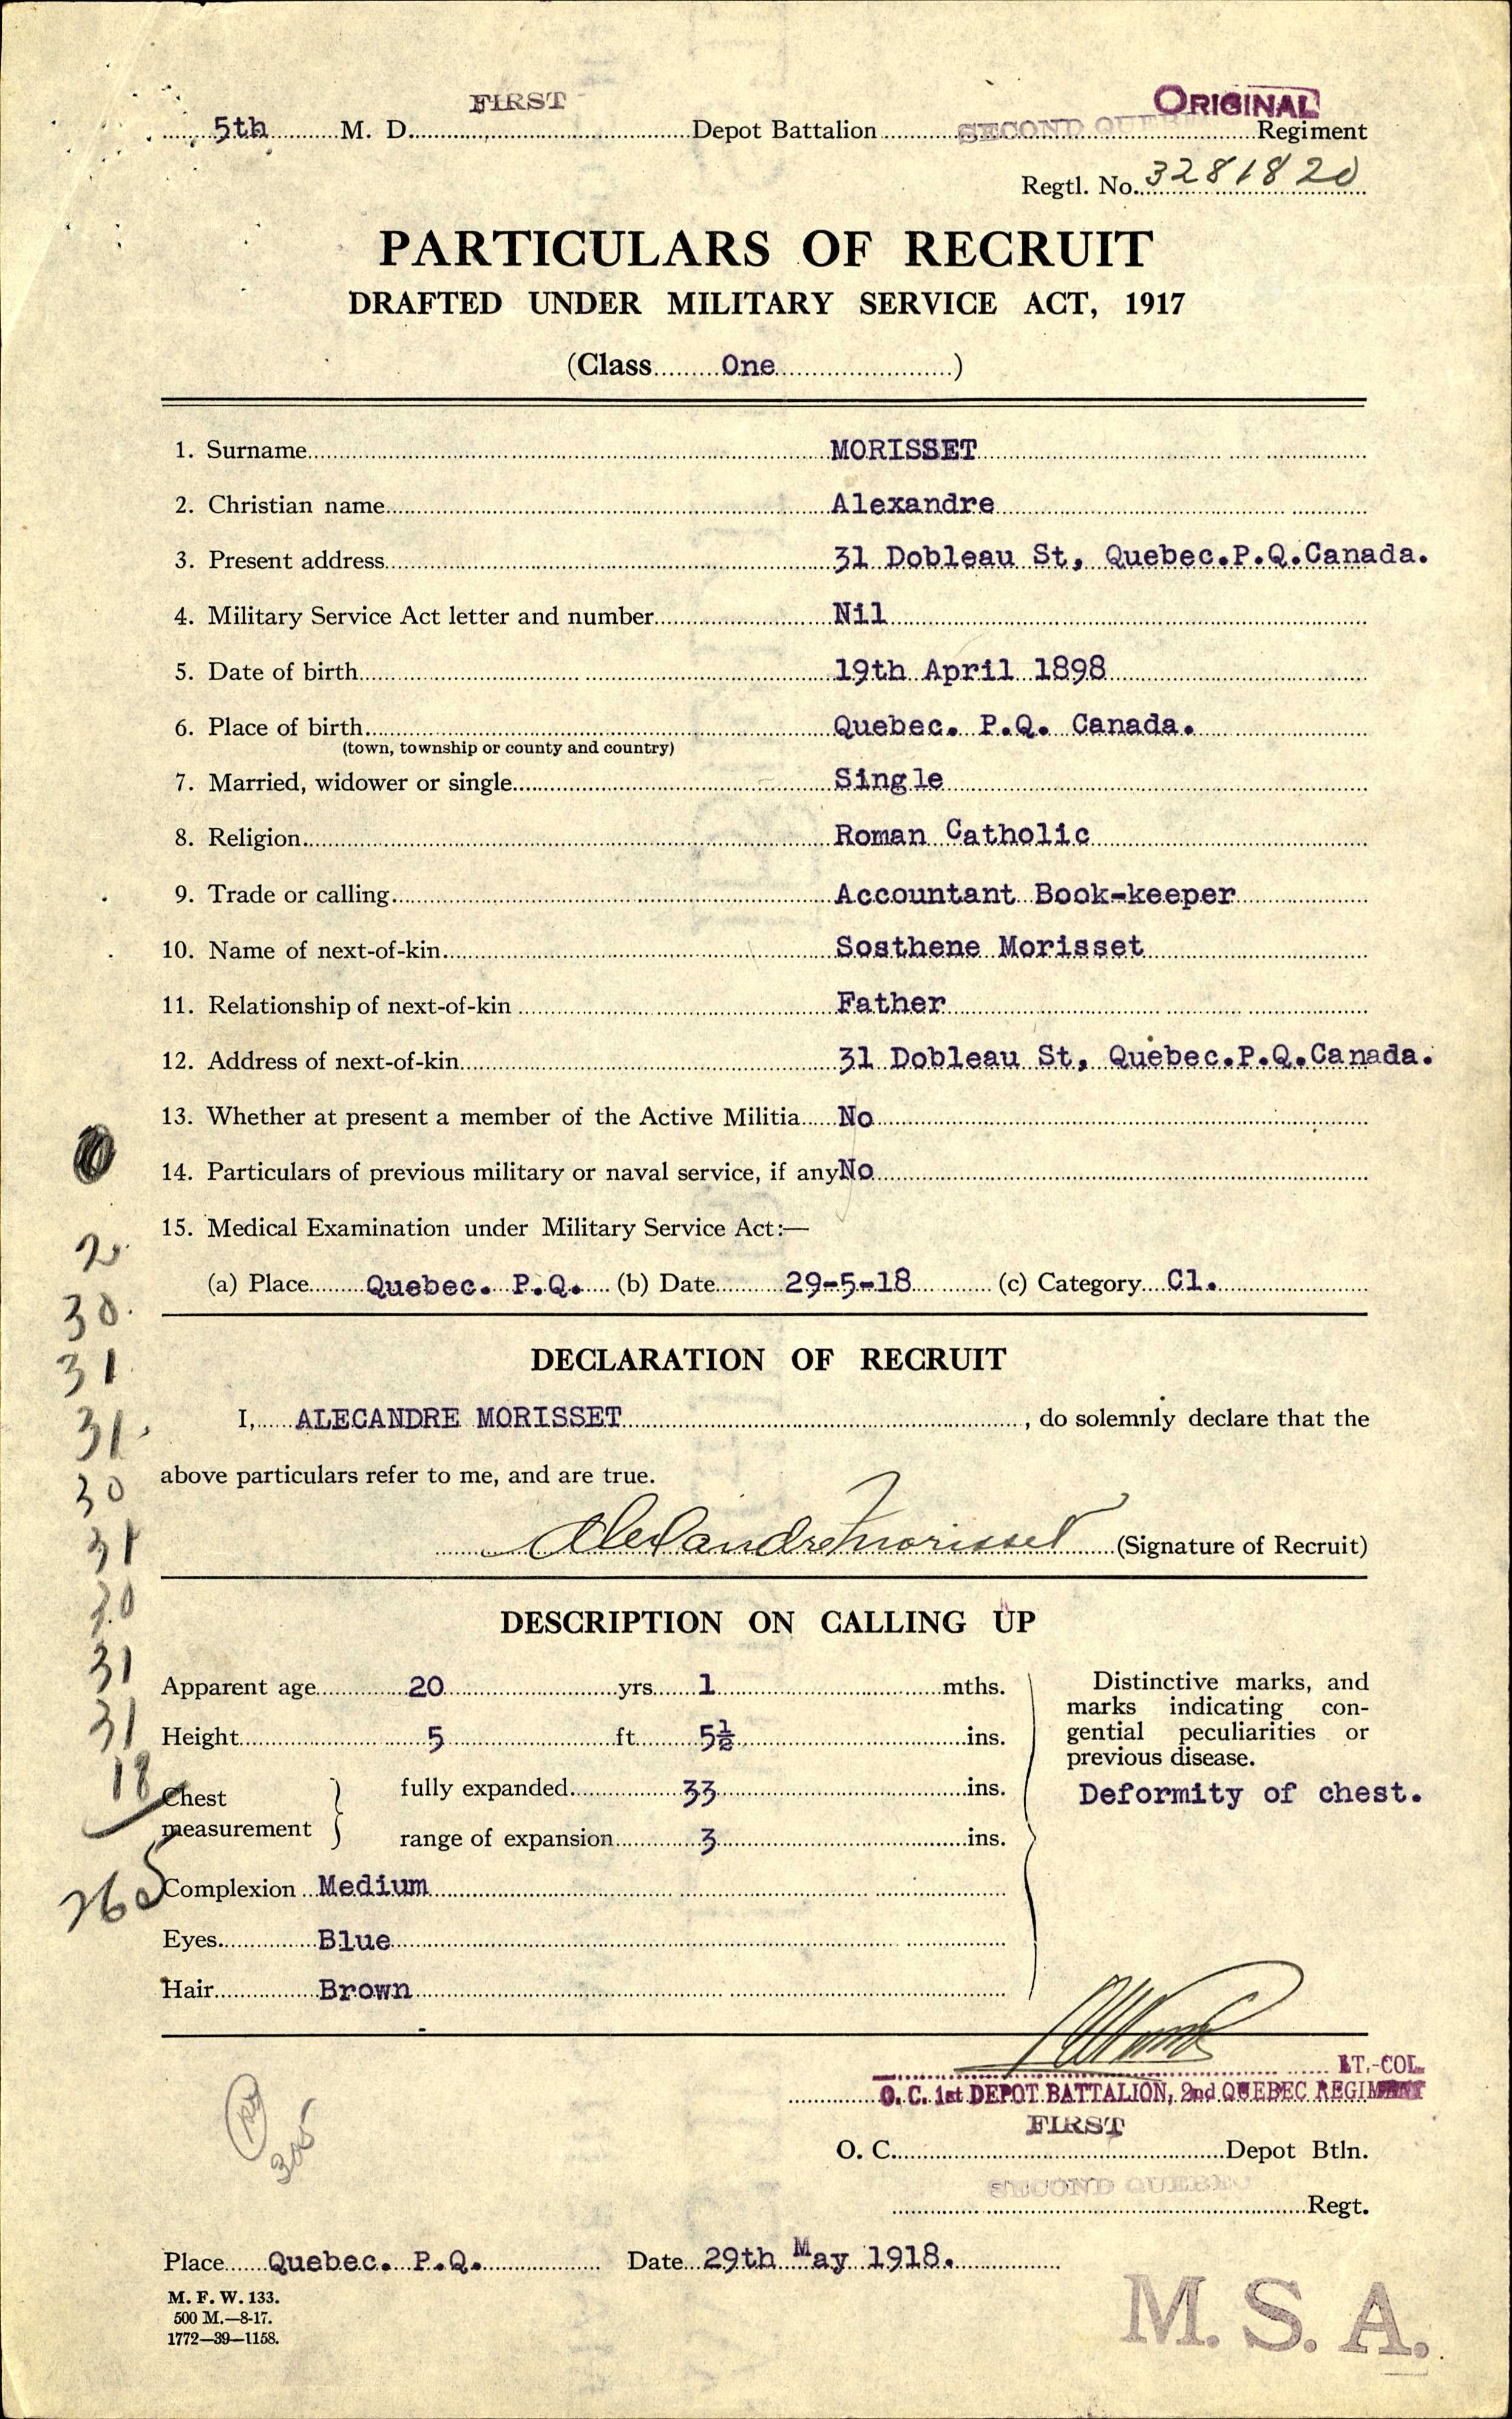 FIRST
ORIGINAL
5th M. D. Depot Battalion SECOND QUE Regiment
Regtl. No. 3281820
PARTICULARS OF RECRUIT
DRAFTED UNDER MILITARY SERVICE ACT, 1917
(Class One )
1. Surname MORISSET
2. Christian name Alexandre
3. Present address 31 Dobleau St, Quebec.P.Q.Canada.
4. Military Service Act letter and number Nil
5. Date of birth 19th April 1898
6. Place of birth Quebec. P.Q. Canada.
(town, township or county and country)
7. Married, widower or single Single
8. Religion Roman Catholic
9. Trade or calling Accountant Book-keeper
10. Name of next-of-kin Sosthene Morisset
11. Relationship of next-of-kin Father
12. Address of next-of-kin 31 Dobleau St, Quebec.P.Q.Canada.
13. Whether at present a member of the Active Militia No
14. Particulars of previous military or naval service, if any No
15. Medical Examination under Military Service Act:—
(a) Place Quebec. P.Q. (b) Date 29-5-18 (c) Category C1.
2
30
31
31
30
31
30
31
31
18
265
DECLARATION OF RECRUIT
I, ALECANDRE MORISSET, do solemnly declare that the
above particulars refer to me, and are true.
Alexandre Morisset (Signature of Recruit)
DESCRIPTION ON CALLING UP
Apparent age 20 yrs 1 mths.
Height 5 ft 5½ ins.
Chest measurement
fully expanded 33 ins.
range of expansion 3 ins.
Complexion Medium
Eyes Blue
Hair Brown
Distinctive marks, and
marks indicating con-
gential peculiarities or
previous disease.
Deformity of chest.
LT.-COL.
O. C. 1st DEPOT BATTALION, 2nd QUEBEC REGIMENT
FIRST
O. C. Depot Btln.
SECOND QUEBEC
Regt.
305
Place Quebec. P.Q. Date 29th May 1918.
M. F. W. 133.
500 M.—8-17.
1772—39—1158.
M. S. A.